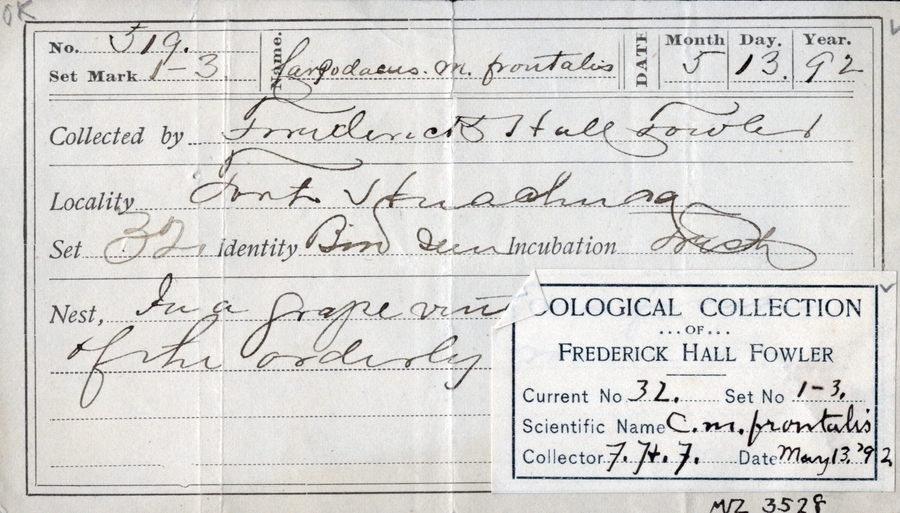 OK
No. 519. Name. Carpodacus. m. frontalis DATE Month Day. Year.
Set Mark 1-3. 5 13. 92
Collected by Frederick Hall Fowler
Locality Fort Huachuca
Set 32. Identity Bird seen Incubation Fresh
Nest, In a grape vine
of the orderly
OOLOGICAL COLLECTION
...OF...
FREDERICK HALL FOWLER
Current No 32. Set No 1-3.
Scientific Name C. m. frontalis
Collector F. H. F. Date May 13. '92
MVZ 3528